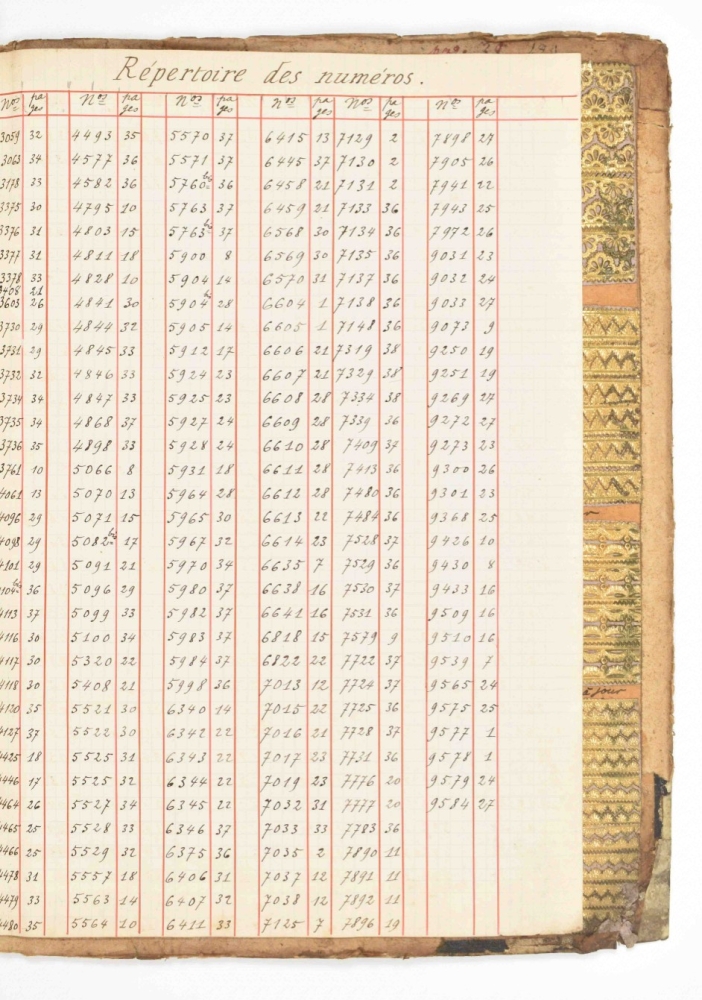 Répertoire des numéros.
Nos pa ges Nos pa ges Nos pa ges Nos pa ges Nos pa ges Nos pa ges
3059 32 4493 35 5570 37 6415 13 7129 2 7898 27
3063 34 4577 36 5571 37 6445 37 7130 2 7905 26
3178 33 4582 36 5760 bis 36 6458 21 7131 2 7941 22
3375 30 4795 10 5763 37 6459 21 7133 36 7943 25
3376 31 4803 15 5763 bis 37 6568 30 7134 36 7972 26
3377 31 4811 18 5900 8 6569 30 7135 36 9031 23
3378 33 4828 10 5904 14 6570 31 7137 36 9032 24
3408 21
3603 26 4841 30 5904 b 28 6604 1 7138 36 9033 27
3730 29 4844 32 5905 14 6605 1 7148 36 9073 9
3731 29 4845 33 5912 17 6606 21 7319 38 9250 19
3732 32 4846 33 5924 23 6607 21 7329 38 9251 19
3734 34 4847 33 5925 23 6608 28 7334 38 9269 27
3735 34 4868 37 5927 24 6609 28 7339 36 9272 27
3736 35 4898 33 5928 24 6610 28 7409 37 9273 23
3761 10 5066 8 5931 18 6611 28 7413 36 9300 26
4061 13 5070 13 5964 28 6612 28 7480 36 9301 23
4096 29 5071 15 5965 30 6613 22 7484 36 9368 25
4098 29 5082 bis 17 5967 32 6614 23 7528 37 9426 10
4101 29 5091 21 5970 34 6635 7 7529 36 9430 8
4104 bis 36 5096 29 5980 37 6638 16 7530 37 9433 16
4113 37 5099 33 5982 37 6641 16 7531 36 9509 16
4116 30 5100 34 5983 37 6818 15 7579 9 9510 16
4117 30 5320 22 5984 37 6822 22 7722 37 9539 7
4118 30 5408 21 5998 36 7013 12 7724 37 9565 24
4120 35 5521 30 6340 14 7015 22 7725 36 9575 25
4127 37 5522 30 6342 22 7016 21 7728 37 9577 1
4425 18 5525 31 6343 22 7017 23 7731 36 9578 1
4446 17 5525 32 6344 22 7019 23 7776 20 9579 24
4464 26 5527 34 6345 22 7032 31 7777 20 9584 27
4465 25 5528 33 6346 37 7033 33 7783 36
4466 25 5529 32 6375 36 7035 2 7890 11
4478 31 5557 18 6406 31 7037 12 7891 11
4479 33 5563 14 6407 32 7038 12 7892 11
4480 35 5564 10 6411 33 7125 7 7896 19
jour